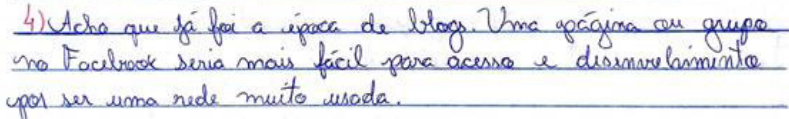 4) Acho que já foi a época de blogs. Uma página ou grupo
no Facebook seria mais fácil para acesso e disinvolvimento
por ser uma rede muito usada.